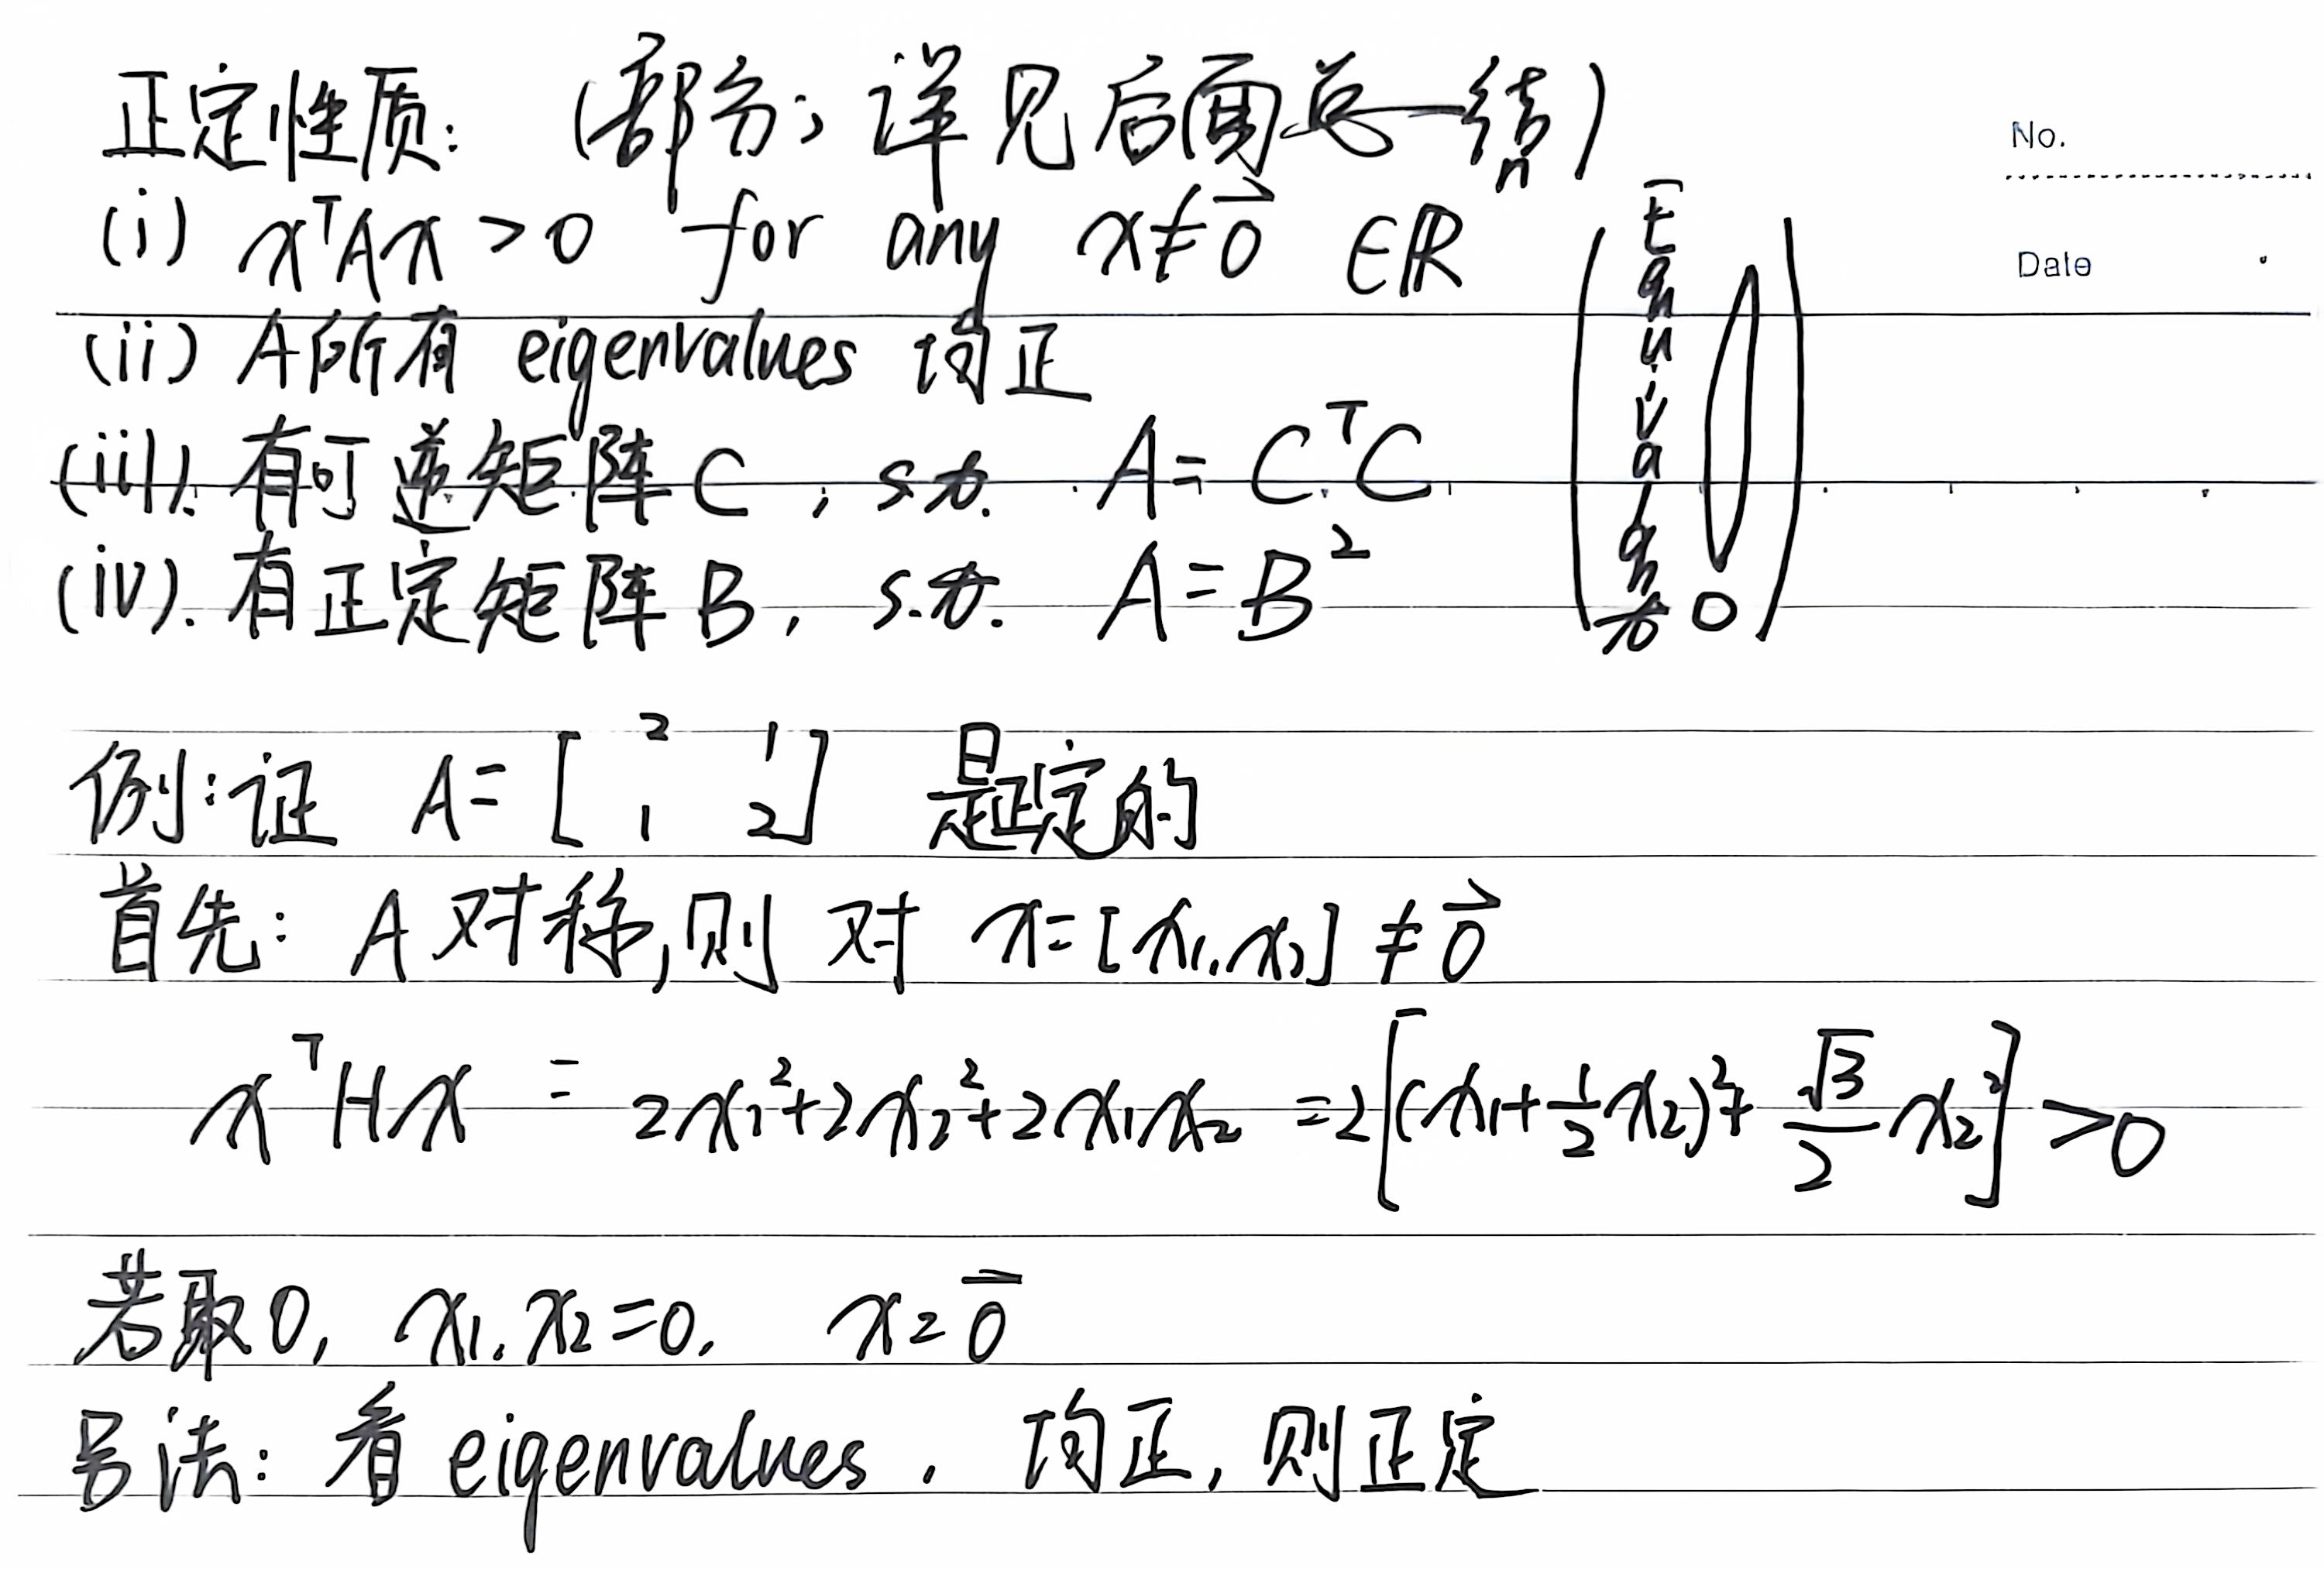 正定性质: (部分; 详见后面总结)
No.
(i) xᵀAx > 0 for any x ≠ 0⃗ ∈ℝⁿ
Date
(ii) A所有 eigenvalues 均正
(iii). 有可逆矩阵 C , s.t. A = CᵀC
(iv). 有正定矩阵 B, s.t. A = B²
Equivalent
例: 证 A = [2 1
1 2] 是正定的
首先: A 对称, 则 对 x = [x₁, x₂] ≠ 0⃗
xᵀHx = 2x₁² + 2x₂² + 2x₁x₂ = 2[(x₁ + 1/2 x₂)² + √3/2 x₂²] > 0
若取 0, x₁, x₂ = 0, x = 0⃗
另法: 看 eigenvalues, 均正, 则正定